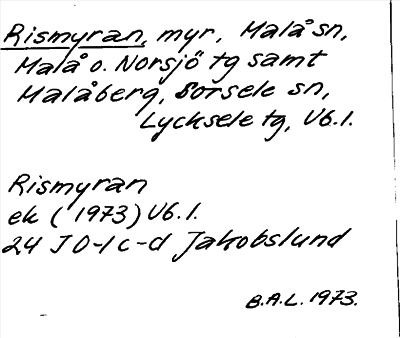 Rismyran, myr, Malå sn,
Malå o. Norsjö tg samt
Malåberg, Sorsele sn,
Lycksele tg, Vb.l.
Rismyran
ek (1973) Vb.l.
24 J 0-1 c-d Jakobslund
B.A.L. 1973.